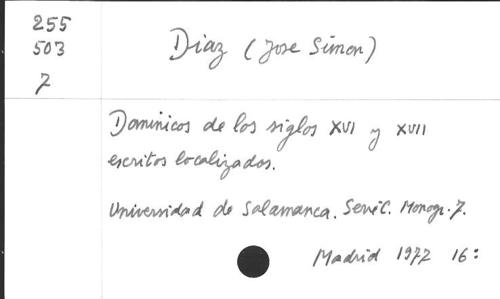 255
503
7
Diaz (Jose Simon)
Dominicos de los siglos XVI y XVII
escritos localizados.
Universidad de Salamanca. Servic. Monogr. 7.
Madrid 1977 16: